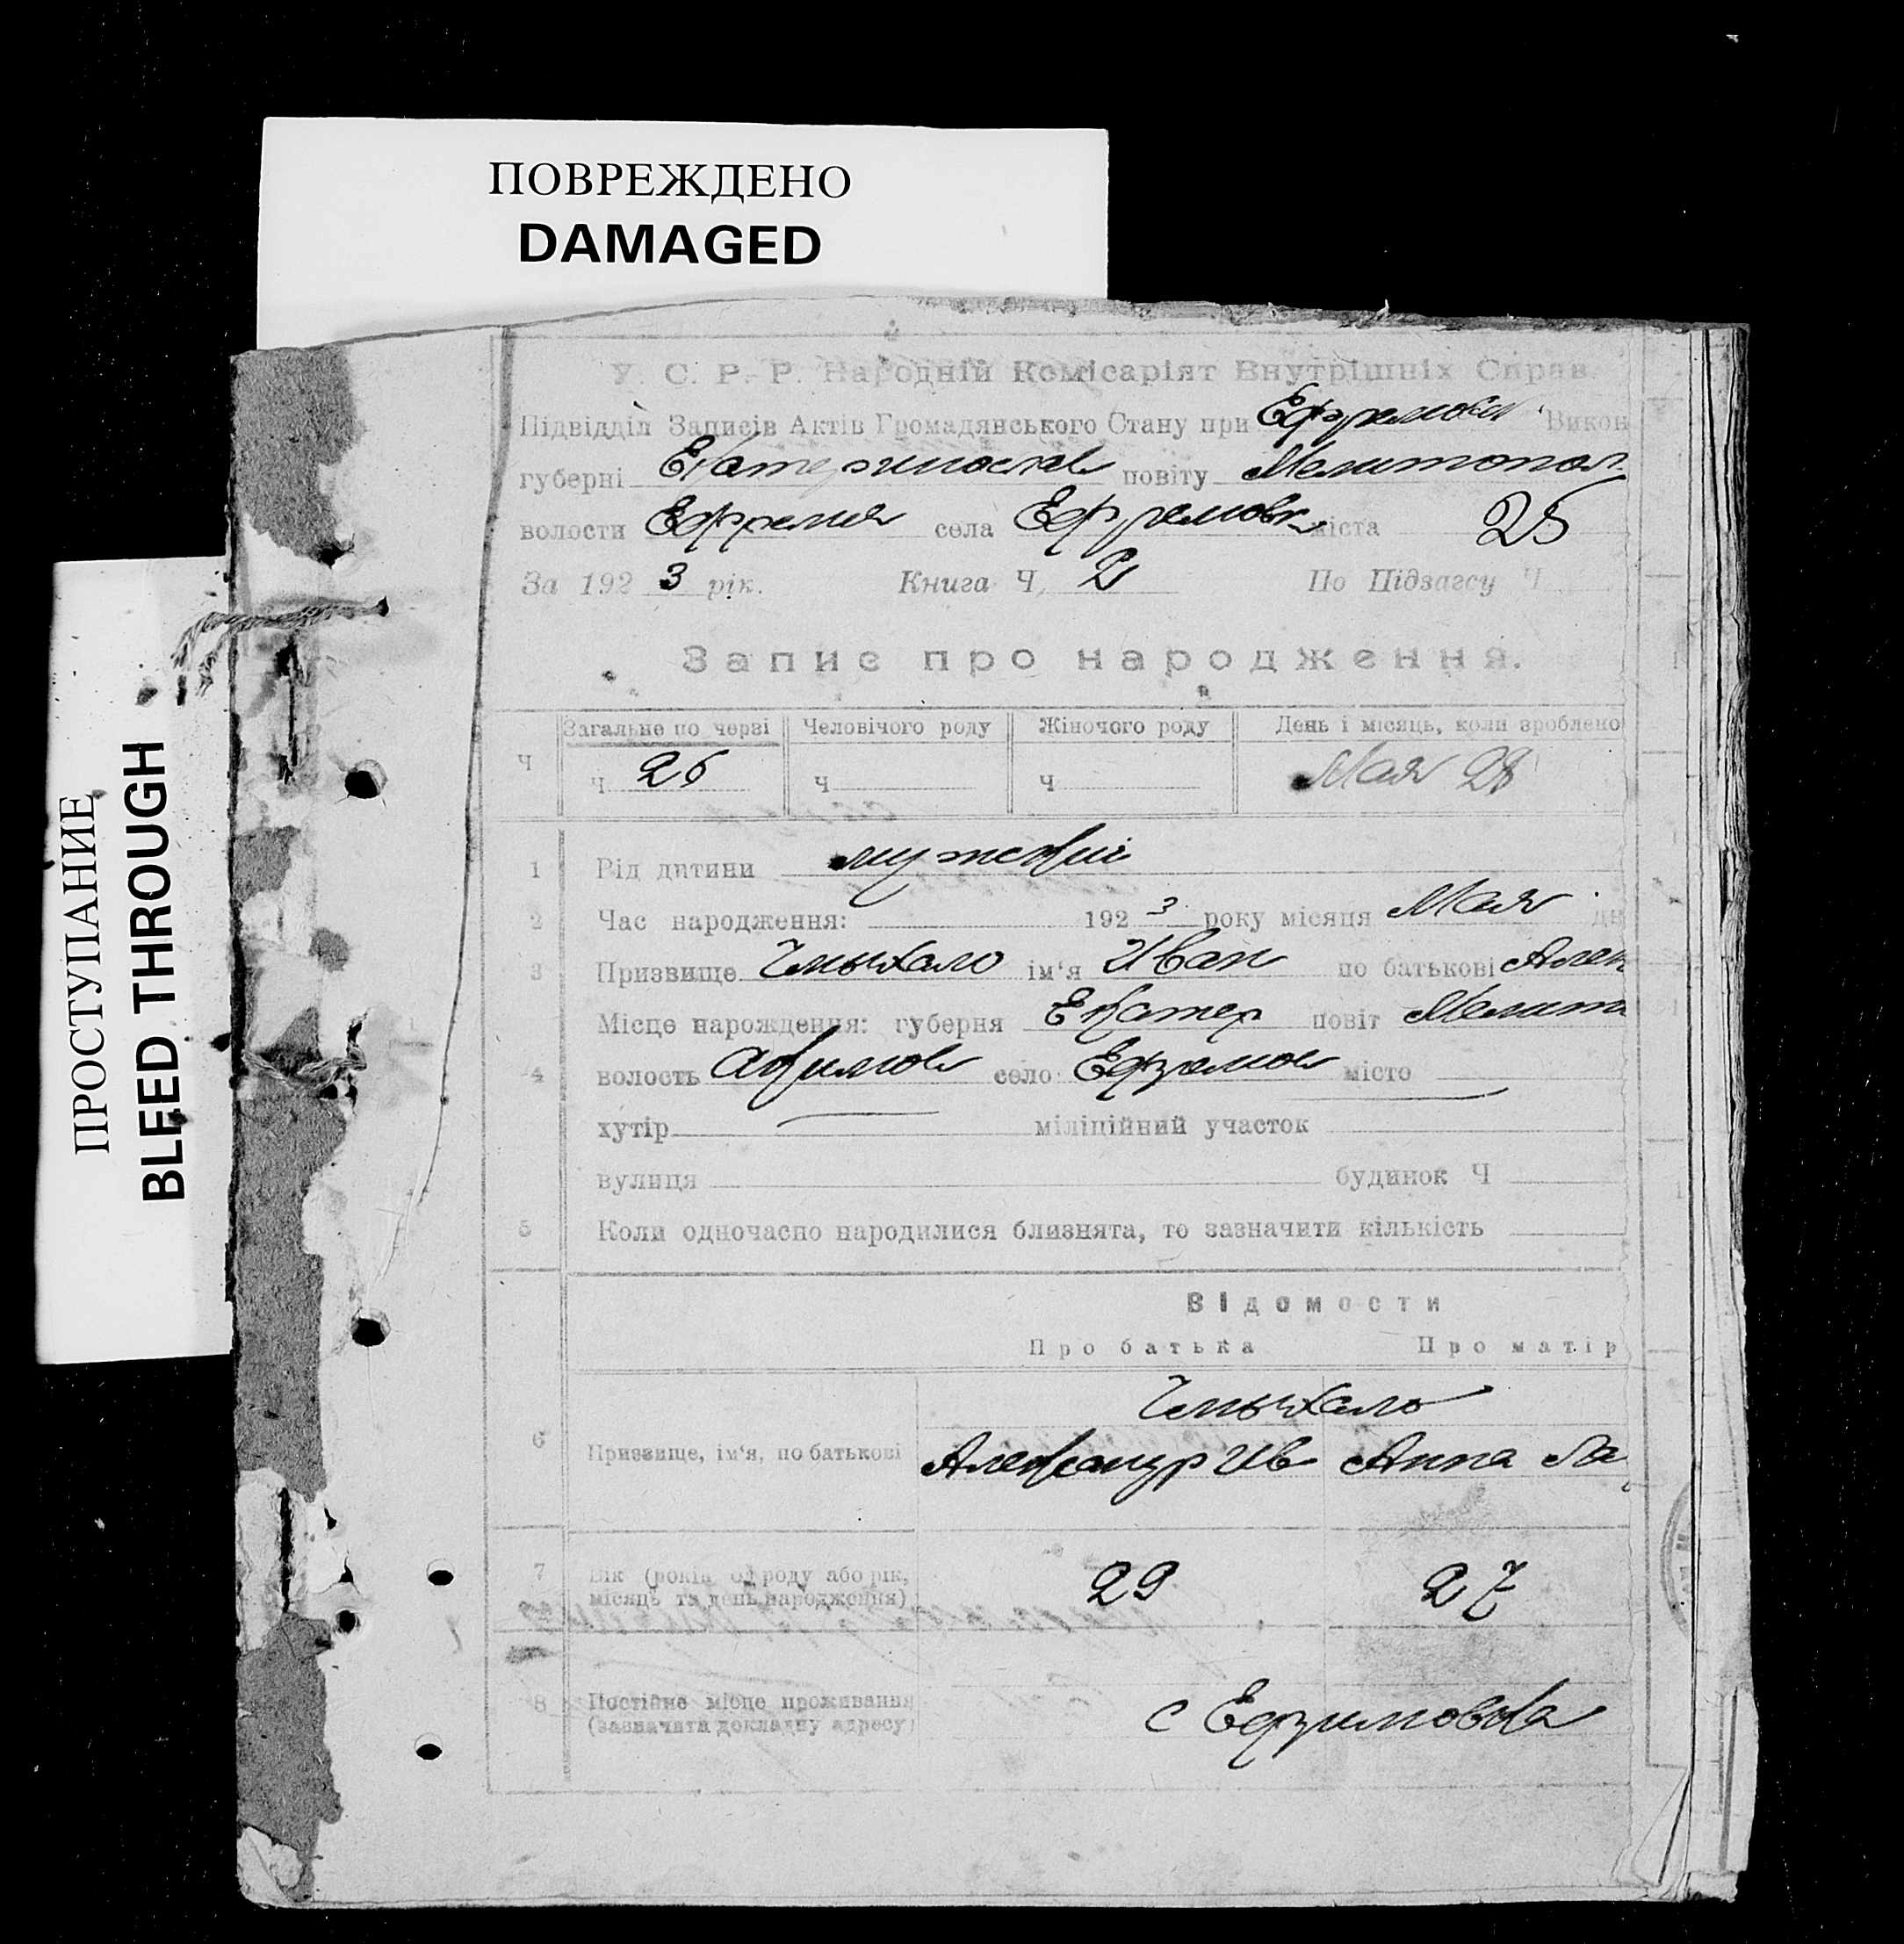 ПОВРЕЖДЕНО
DAMAGED
ПРОСТУПАНИЕ
BLEED THROUGH
У. С. Р. Р. Народній Комісаріят Внутрішніх Справ.
Підвідділ Записів Актів Громадянського Стану при Ефремовск Викон
губерні Екатеринослав повіту Мелитопол
волости Ефремия села Ефремовк міста 25
За 1923 рік. Книга Ч. 2 По Підзагсу Ч
Запис про народження.
Ч Загальне по черзі Человічого роду Жіночого роду День і місяць, коли зроблено
Ч 26 Ч Ч Мая 28
1 Рід дитини мужский
2 Час народження: 1923 року місяця Мая дн
3 Призвище Чмыхало ім'я Иван по батькові Алек
Місце нарождення: губерня Екатер повіт Мелит
4 волость село Ефремов місто
хутір міліційний участок
вулиця будинок Ч
5 Коли одночасно народилися близнята, то зазначити кількість
Відомости
Про батька Про матір
Чмыхало
6 Призвище, ім'я, по батькові Александр Ив Анна Ла
7 Вік (років од роду або рік,
місяць та день народження) 29 27
8 Постійне місце проживання
(зазначити докладну адресу) с Ефримовка